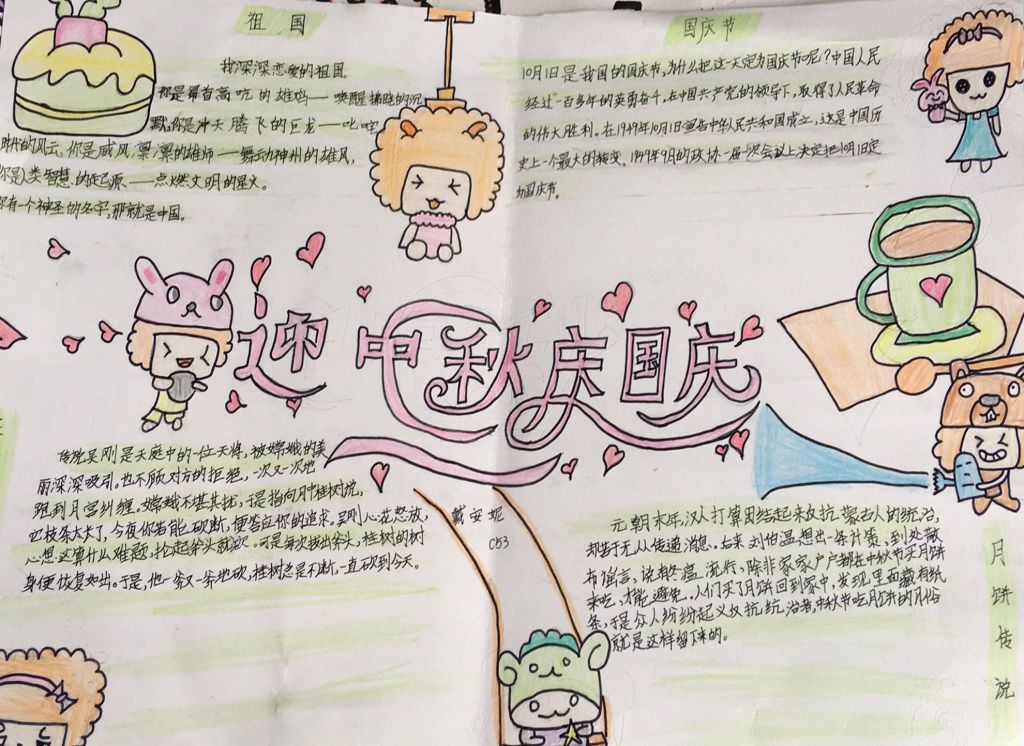 祖国
我深深恋爱的祖国。
你是昂首高吭的雄鸡——唤醒拂晓的沉
默,你是冲天腾飞的巨龙——叱咤
时代的风云,你是威风凛凛的雄师——舞动神州的雄风,
你是人类智慧的起源——点燃文明的星火。
你有一个神圣的名字,那就是中国。
国庆节
10月1日是我国的国庆节,为什么把这一天定为国庆节呢?中国人民
经过一百多年的英勇奋斗,在中国共产党的领导下,取得了人民革命
的伟大胜利。在1949年10月1日宣告中华人民共和国成立,这是中国历
史上一个最大的转变。1949年9月的政协一届一次会议上决定把10月1日定
为国庆节。
迎中秋庆国庆
传说吴刚是天庭中的一位天将,被嫦娥的美
丽深深吸引。也不顾对方的拒绝,一次又一次地
跑到月宫纠缠。嫦娥不堪其扰,于是指向月中桂树说,
此枝条太大了,今夜你若能砍断,便答应你的追求。吴刚心花怒放,
心想这算什么难题,抡起斧头就砍。可是每次拔出斧头,桂树的树
身便恢复如出。于是,他一斧又一斧地砍,桂树总是不断,一直砍到今天。
戴安妮
C53
元朝末年,汉人打算团结起来反抗蒙古人的统治,
却苦于无从传递消息。后来刘伯温想出一条计策,到处散
布谣言,说有冬瘟流行,除非家家户户都在中秋节买月饼
来吃,才能避免。人们买了月饼回到家中,发现里面藏有纸
条,于是众人纷纷起义反抗统治者,中秋节吃月饼的习俗
就是这样留下来的。
月饼传说